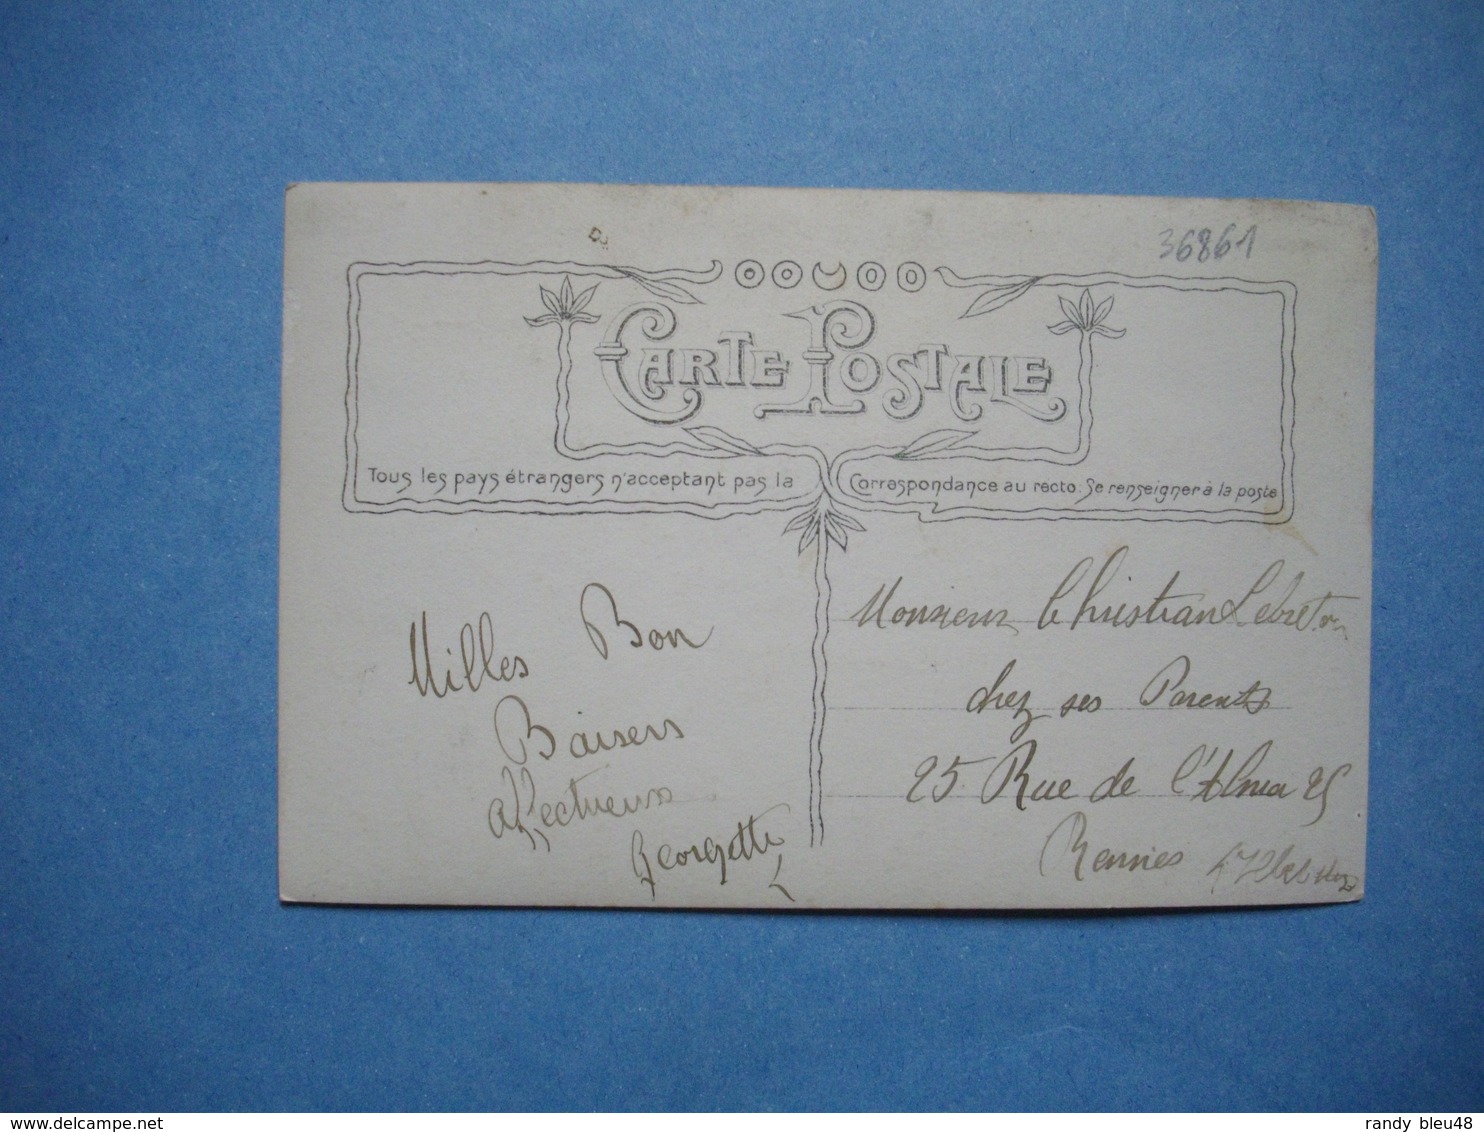 36861
CARTE POSTALE
Tous les pays étrangers n'acceptant pas la Correspondance au recto. Se renseigner à la poste
Milles Bon
Baisers
affectueux
Georgette
Monsieur Christian Lebreton
chez ses Parents
25 Rue de l'Alma 25
Rennes
www.delcampe.net
randy bleu48